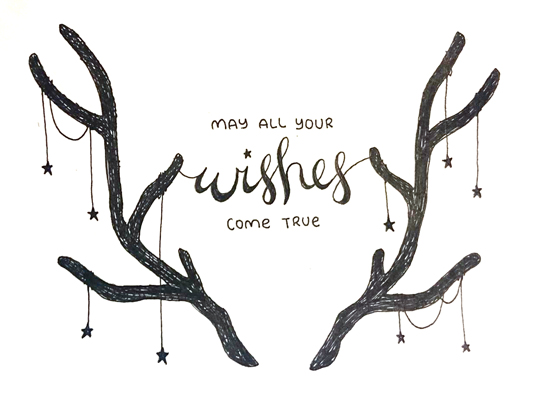 MAY ALL YOUR
wishes
COME TRUE